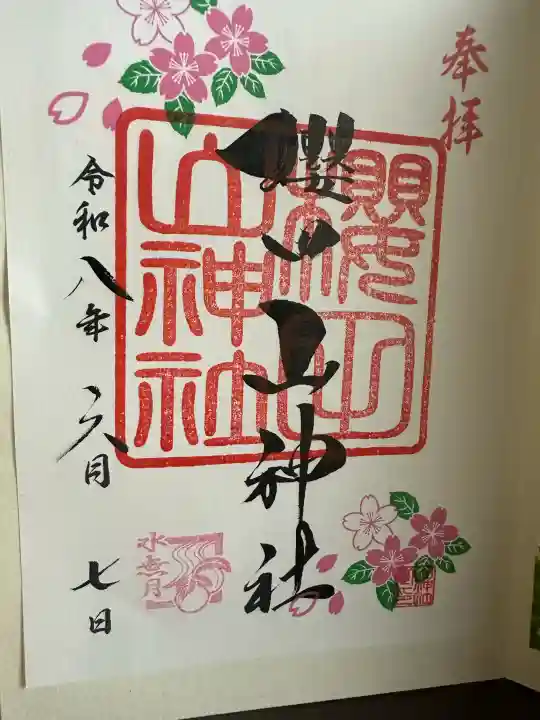 奉拝
櫻山神社
櫻山神社
令和八年 六月 七日
水無月